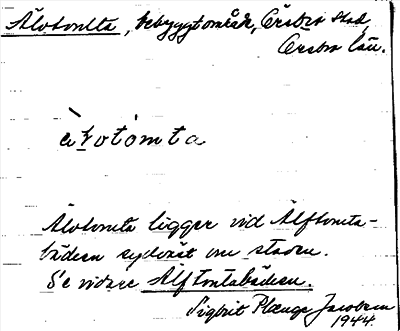 Älvtomta, bebyggt område, Örebro stad,
Örebro län.
ä̀lvtòmta
Älvtomta ligger vid Älftomta-
bädern sydväst om staden.
Se vidare Älftomtabädern.
Sigbrit Plænge Jacobson
1944.